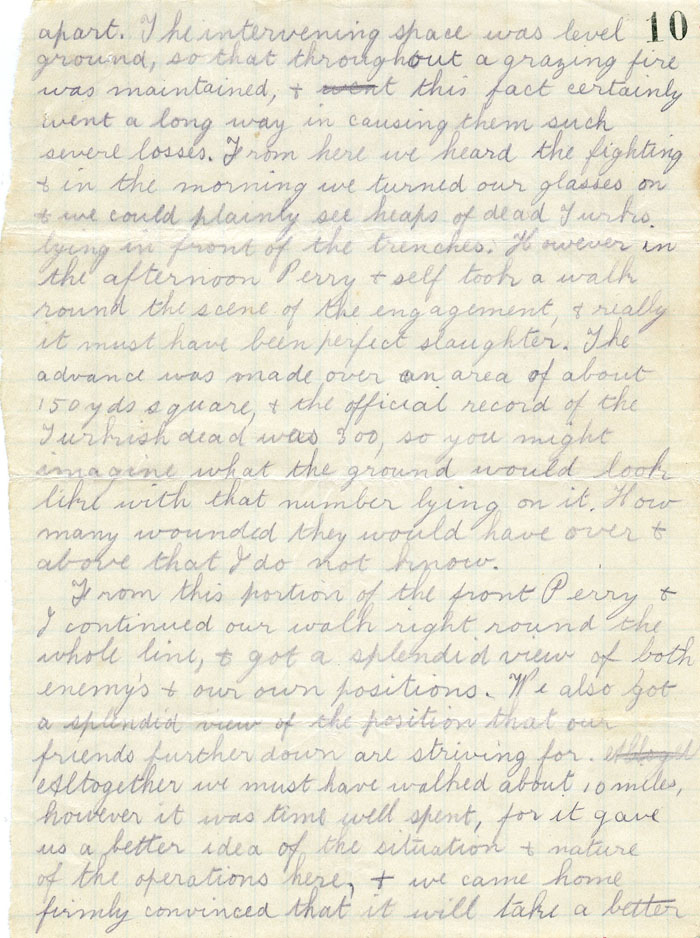 10
apart. The intervening space was level
ground, so that throughout a grazing fire
was maintained, & went this fact certainly
went a long way in causing them such
severe losses. From here we heard the fighting
& in the morning we turned our glasses on
& we could plainly see heaps of dead Turks
lying in front of the trenches. However in
the afternoon Perry & self took a walk
round the scene of the engagement, & really
it must have been perfect slaughter. The
advance was made over an area of about
150 yds square, & the official record of the
Turkish dead was 300, so you might
imagine what the ground would look
like with that number lying on it. How
many wounded they would have over &
above that I do not know.
From this portion of the front Perry &
I continued our walk right round the
whole line, & got a splendid view of both
enemy's & our own positions. We also got
a splendid view of the position that our
friends further down are striving for.
Altogether we must have walked about 10 miles,
however it was time well spent, for it gave
us a better idea of the situation & nature
of the operations here, & we came home
firmly convinced that it will take a better